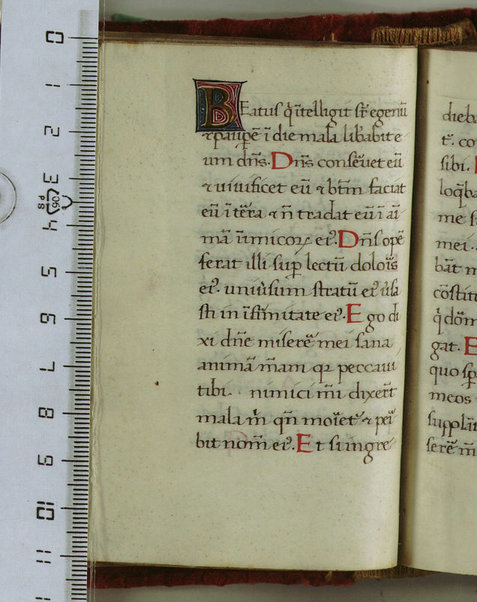 Beatus q̄ ītelligit sr̄ egenū
⁊ paup̄ē ī die mala lib̄abit e
um dn̄s. Dn̄s conseruet eū
⁊ uiuificet eū ⁊ btm̄ faciat
eū ī terra ⁊ n̄ tradat eū ī ai
mā īnimicoꝝ ei⁹. Dn̄s opē
ferat illi sup̄ lectū doloīs
ei⁹. uniūsum stratū ei⁹ u̓sa
sti in īfirmitate ei⁹. Ego di
xi dn̄e miserē mei sana
animā meam qꝛ peccaui
tibi. nimici mi dixerūt
mala m̄ qn̄ moriet᷑ ⁊ peri
bit nom̄ ei⁹. Et si ingre
dieb
t᷑. co
sibi.
loq̄ba
me s
mei.
bāt m
cōstit
q̄ dor̄m
gat. E
quo sp̄
meos
supplāt
serē m
0
1
2
3
4
5
6
7
8
9
10
11